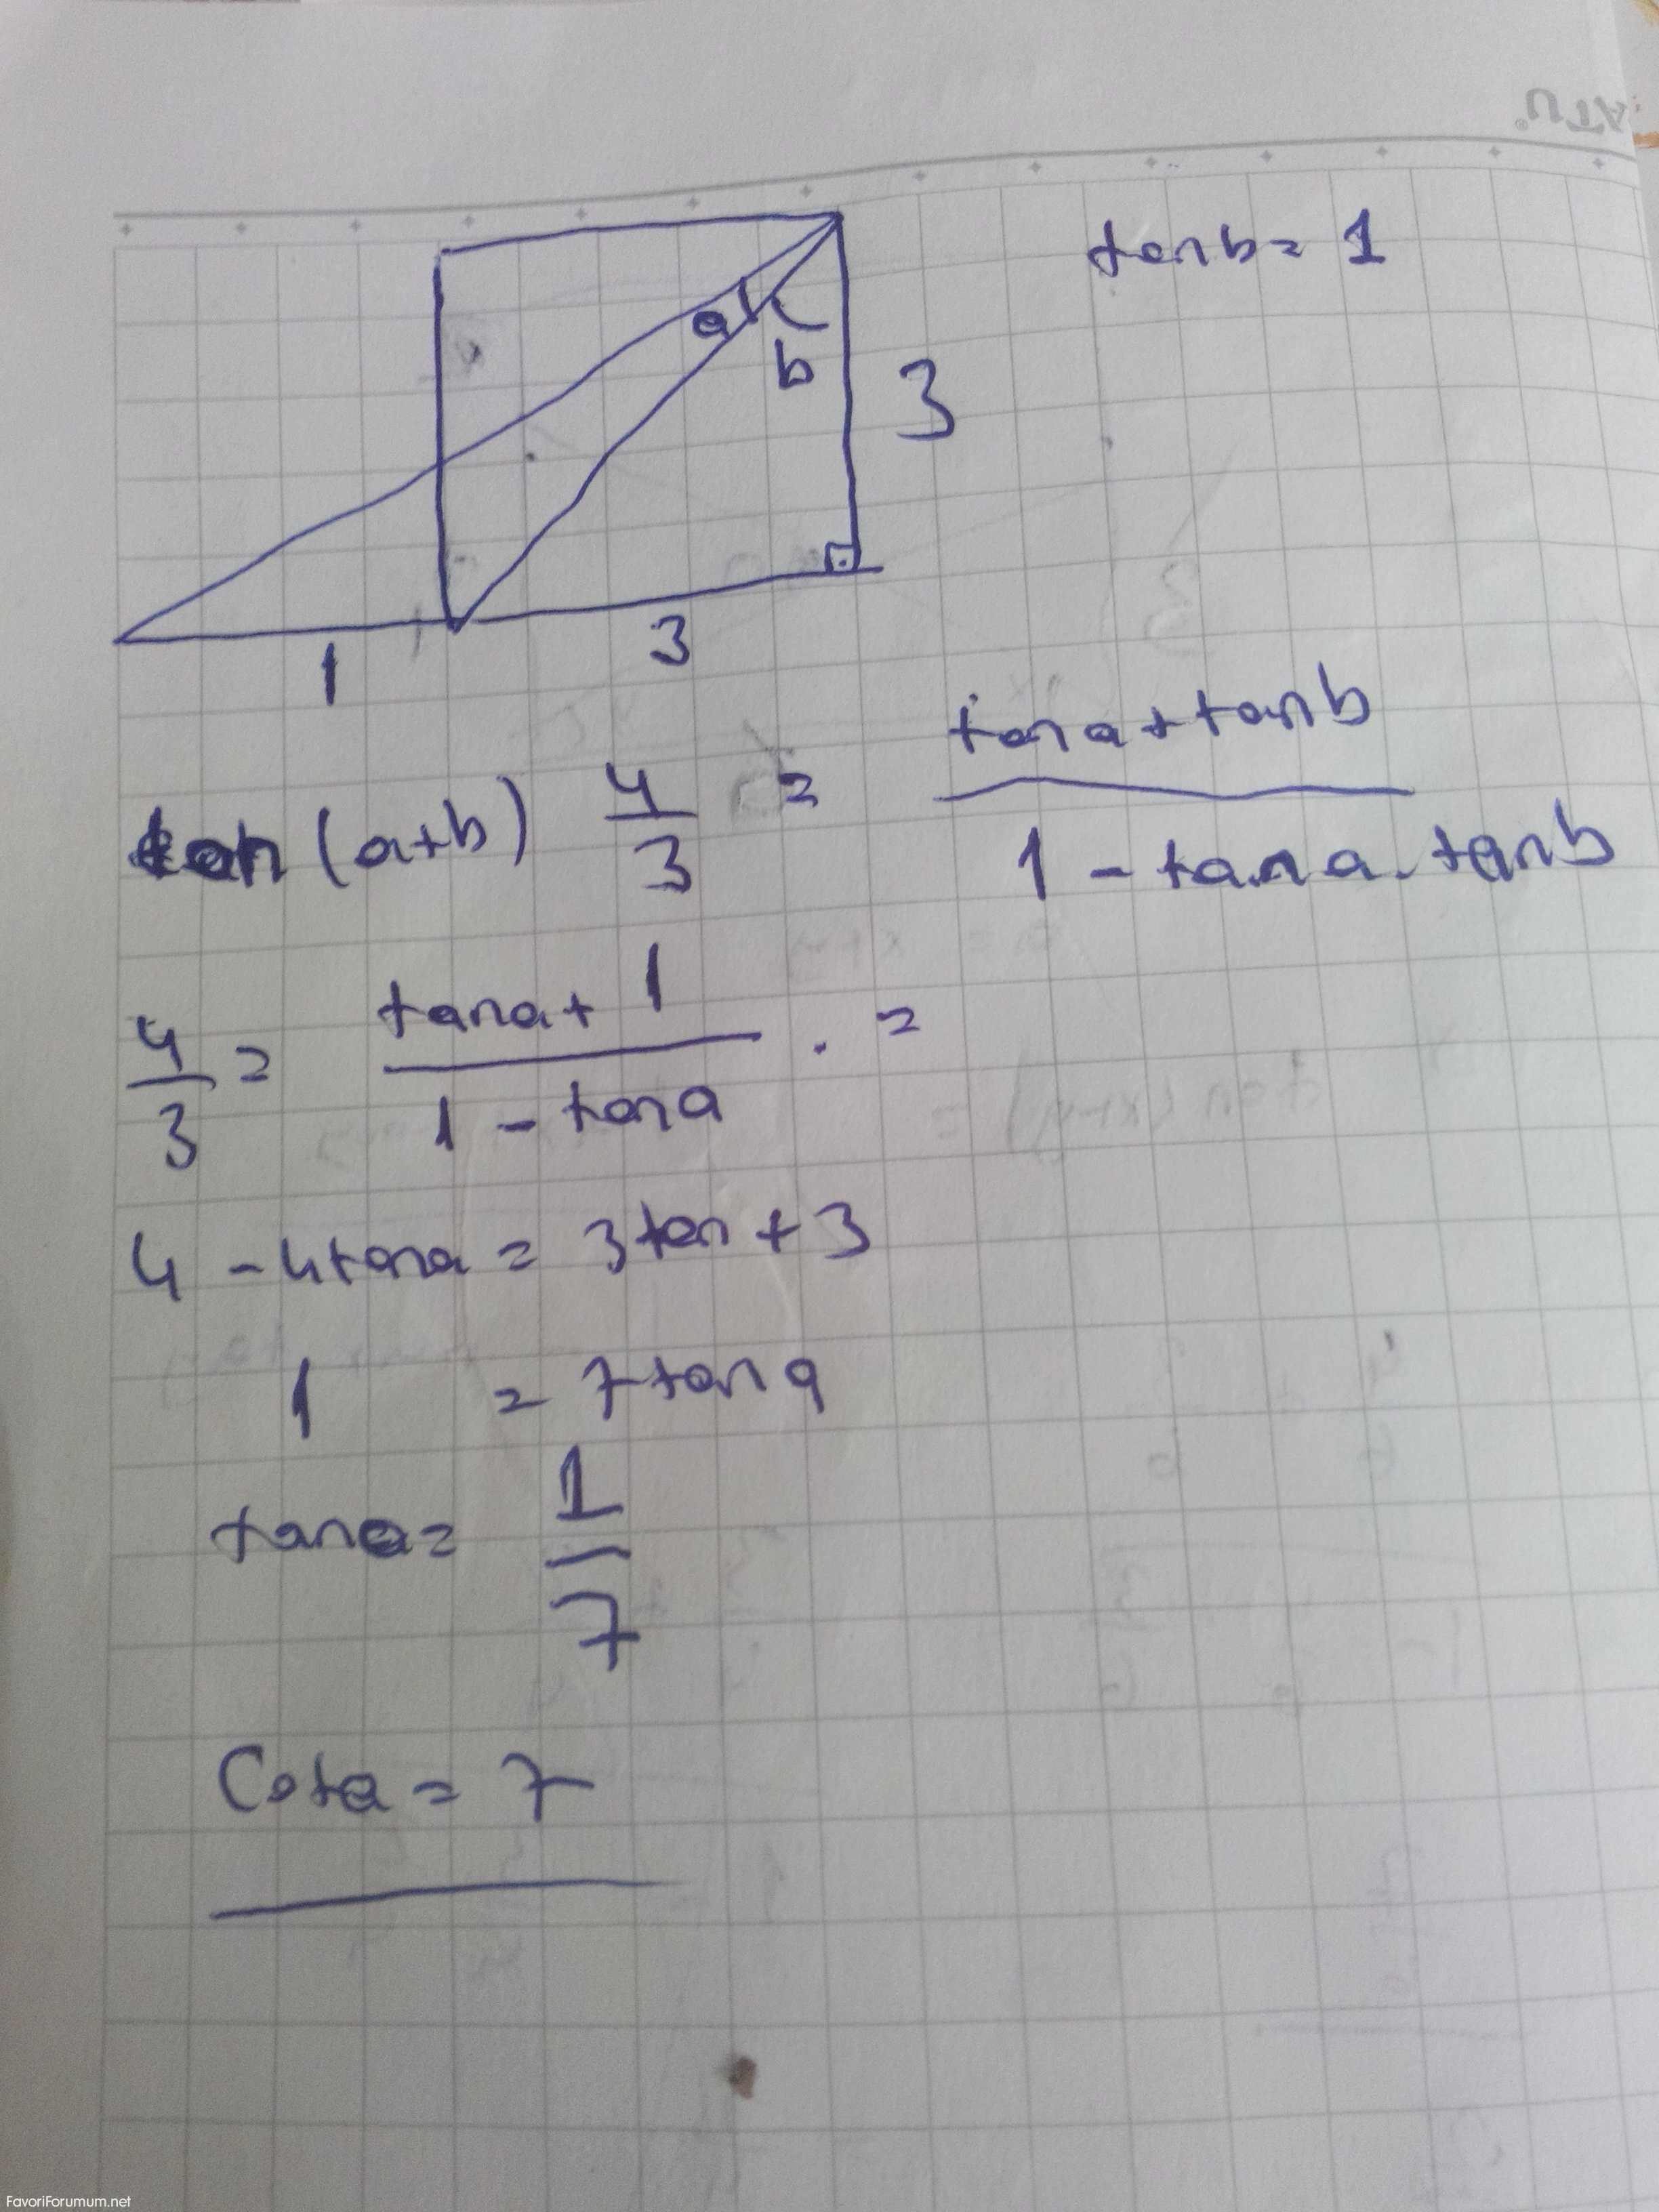 tanb = 1
a
b
3
1
3
tan (a+b) 4/3 = (tana + tanb)/(1 - tana . tanb)
4/3 = (tana + 1)/(1 - tana) . =
4 - 4tana = 3tan + 3
1 = 7tana
tana = 1/7
Cota = 7
FavoriForumum.net